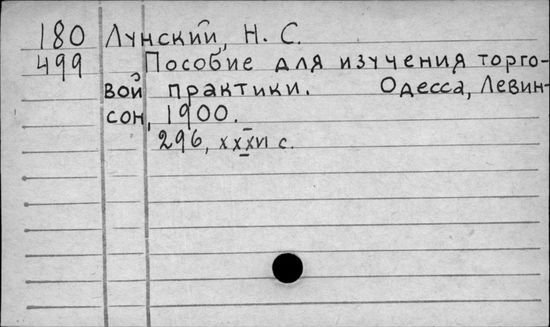 180 Лунский, Н. С.
499 Пособие для изучения торго-
вой практики. Одесса, Левин-
сон, 1900.
296, xxxvi с.